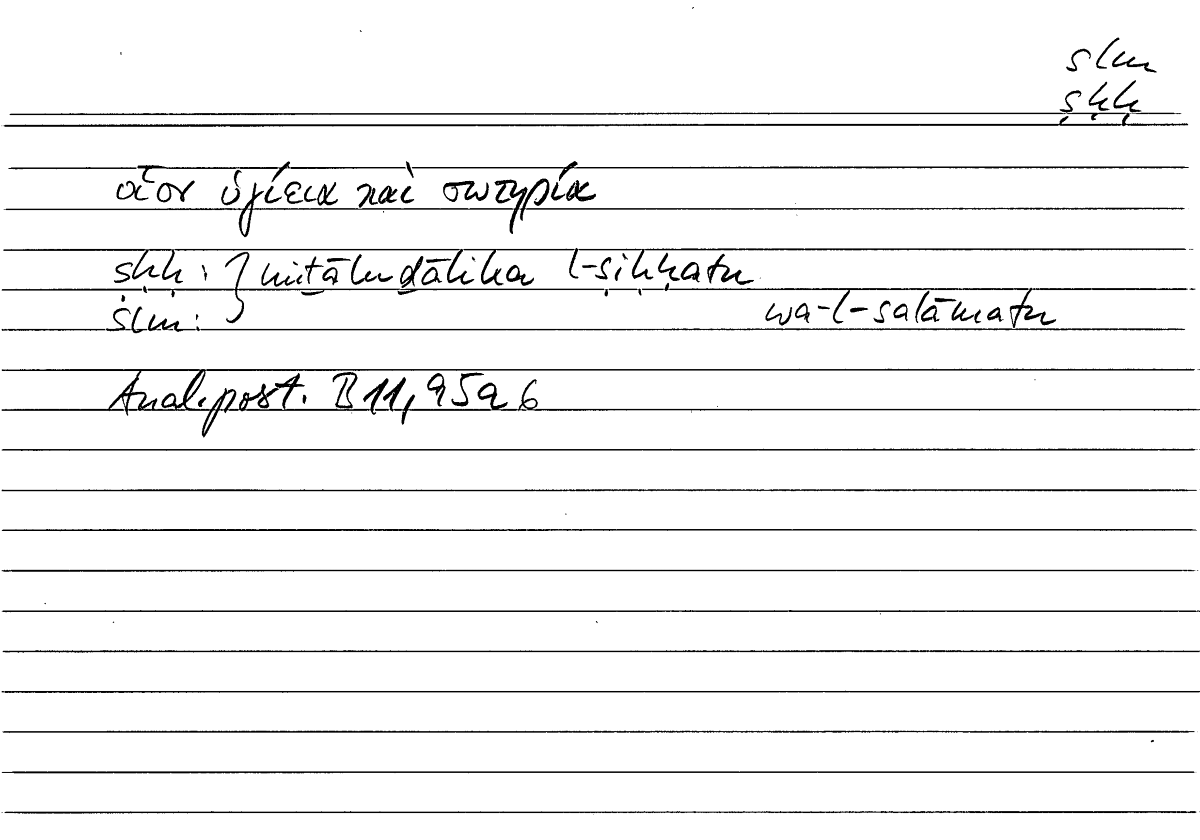 slm
ṣḥḥ
οἷον ὑγίεια καὶ σωτηρία
ṣḥḥ : } miṯālu ḏālika l-ṣiḥḥatu
slm : wa-l-salāmatu
Anal. post. B 11, 95a 6